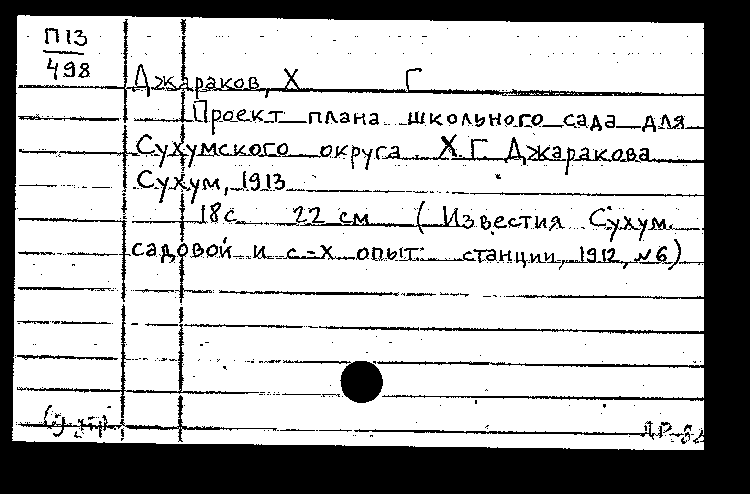 П13
498
Джараков, Х Г
Проект плана школьного сада для
Сухумского округа Х.Г. Джаракова
Сухум, 1913
18с 22 см (Известия Сухум.
садовой и с.-х опыт. станции, 1912, №6)